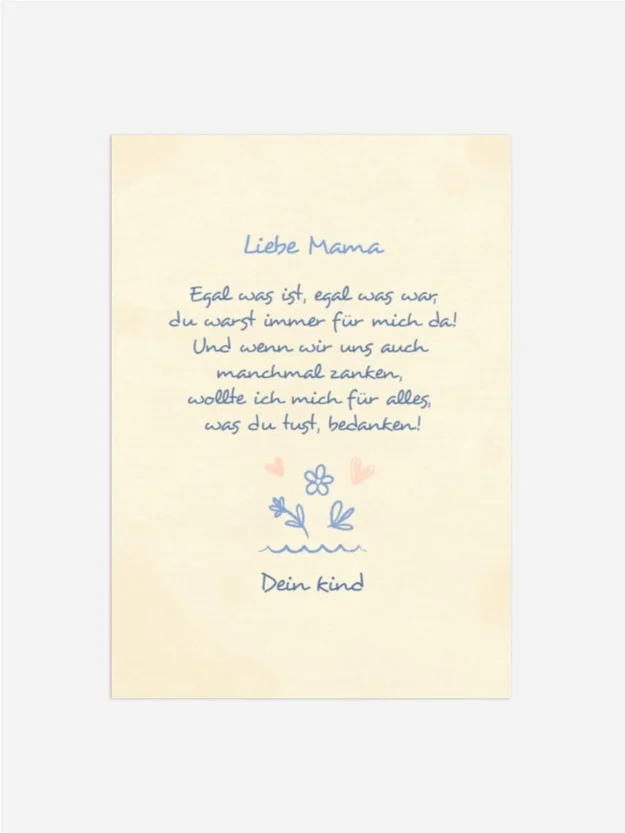 Liebe Mama
Egal was ist, egal was war,
du warst immer für mich da!
Und wenn wir uns auch
manchmal zanken,
wollte ich mich für alles,
was du tust, bedanken!
Dein kind